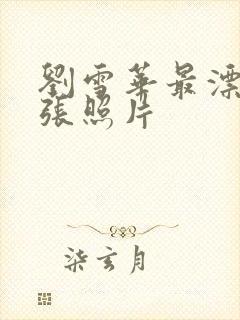 劉雪華最漂
張照片
柒玄月